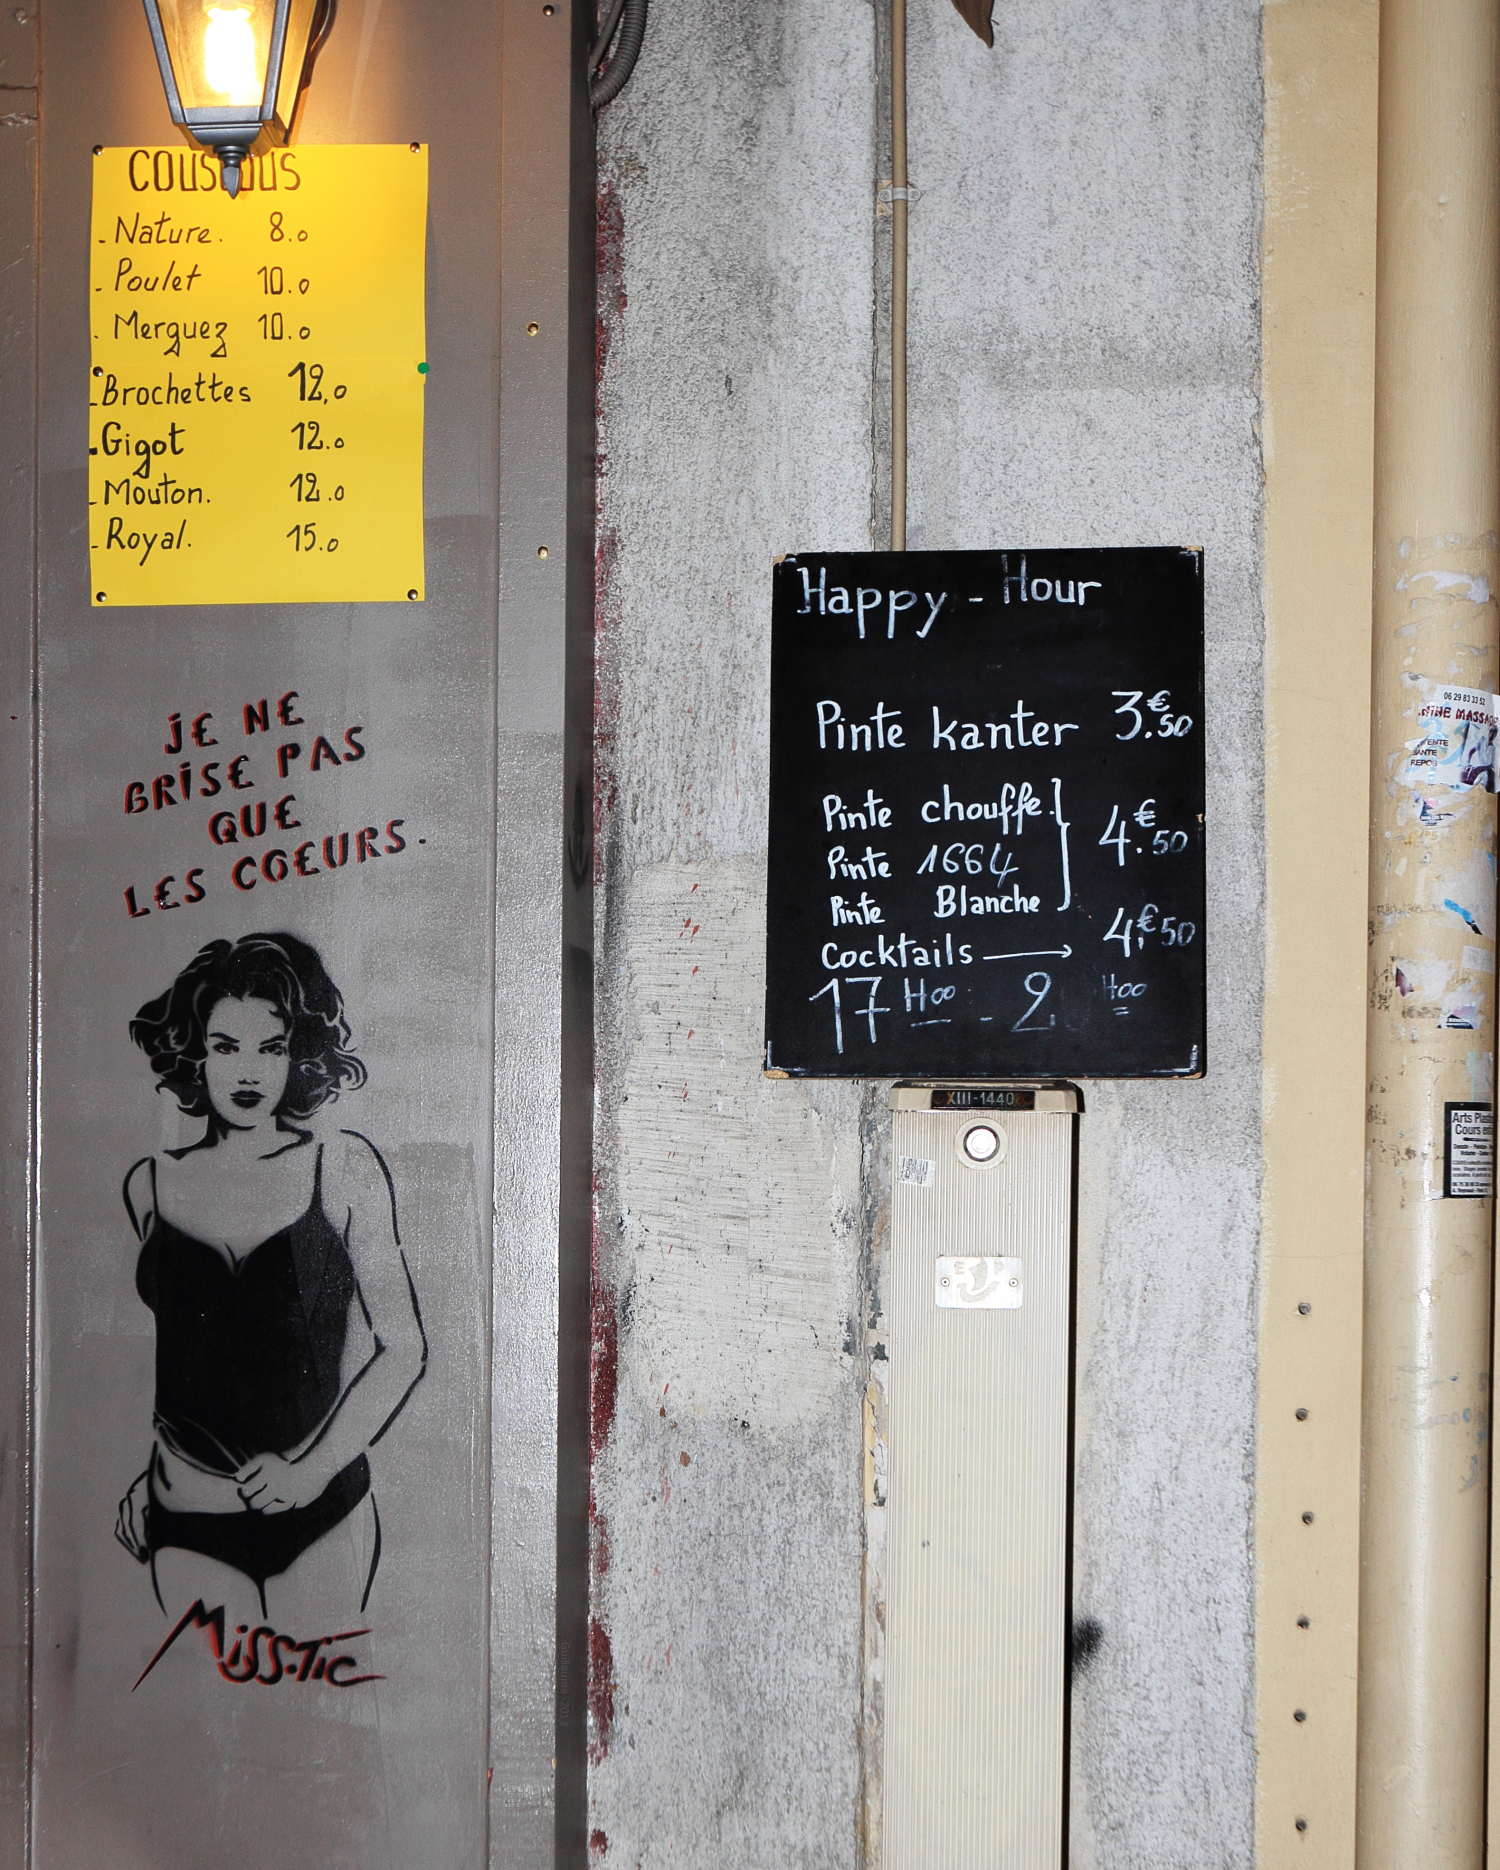 COUSCOUS
- Nature. 8.0
- Poulet 10.0
. Merguez 10.0
- Brochettes 12,0
- Gigot 12.0
- Mouton. 12.0
- Royal. 15.0
JE NE
BRISE PAS
QUE
LES COEURS.
MISS.TIC
Guillaume - 2013
Happy - Hour
Pinte kanter 3.€50
Pinte chouffe.
Pinte 1664 4.€50
Pinte Blanche
Cocktails → 4.€50
17 Hoo - 2 Hoo
XIII-1440
06 29 83 33 52
MASSA
REPOS
Arts Plast
Cours en